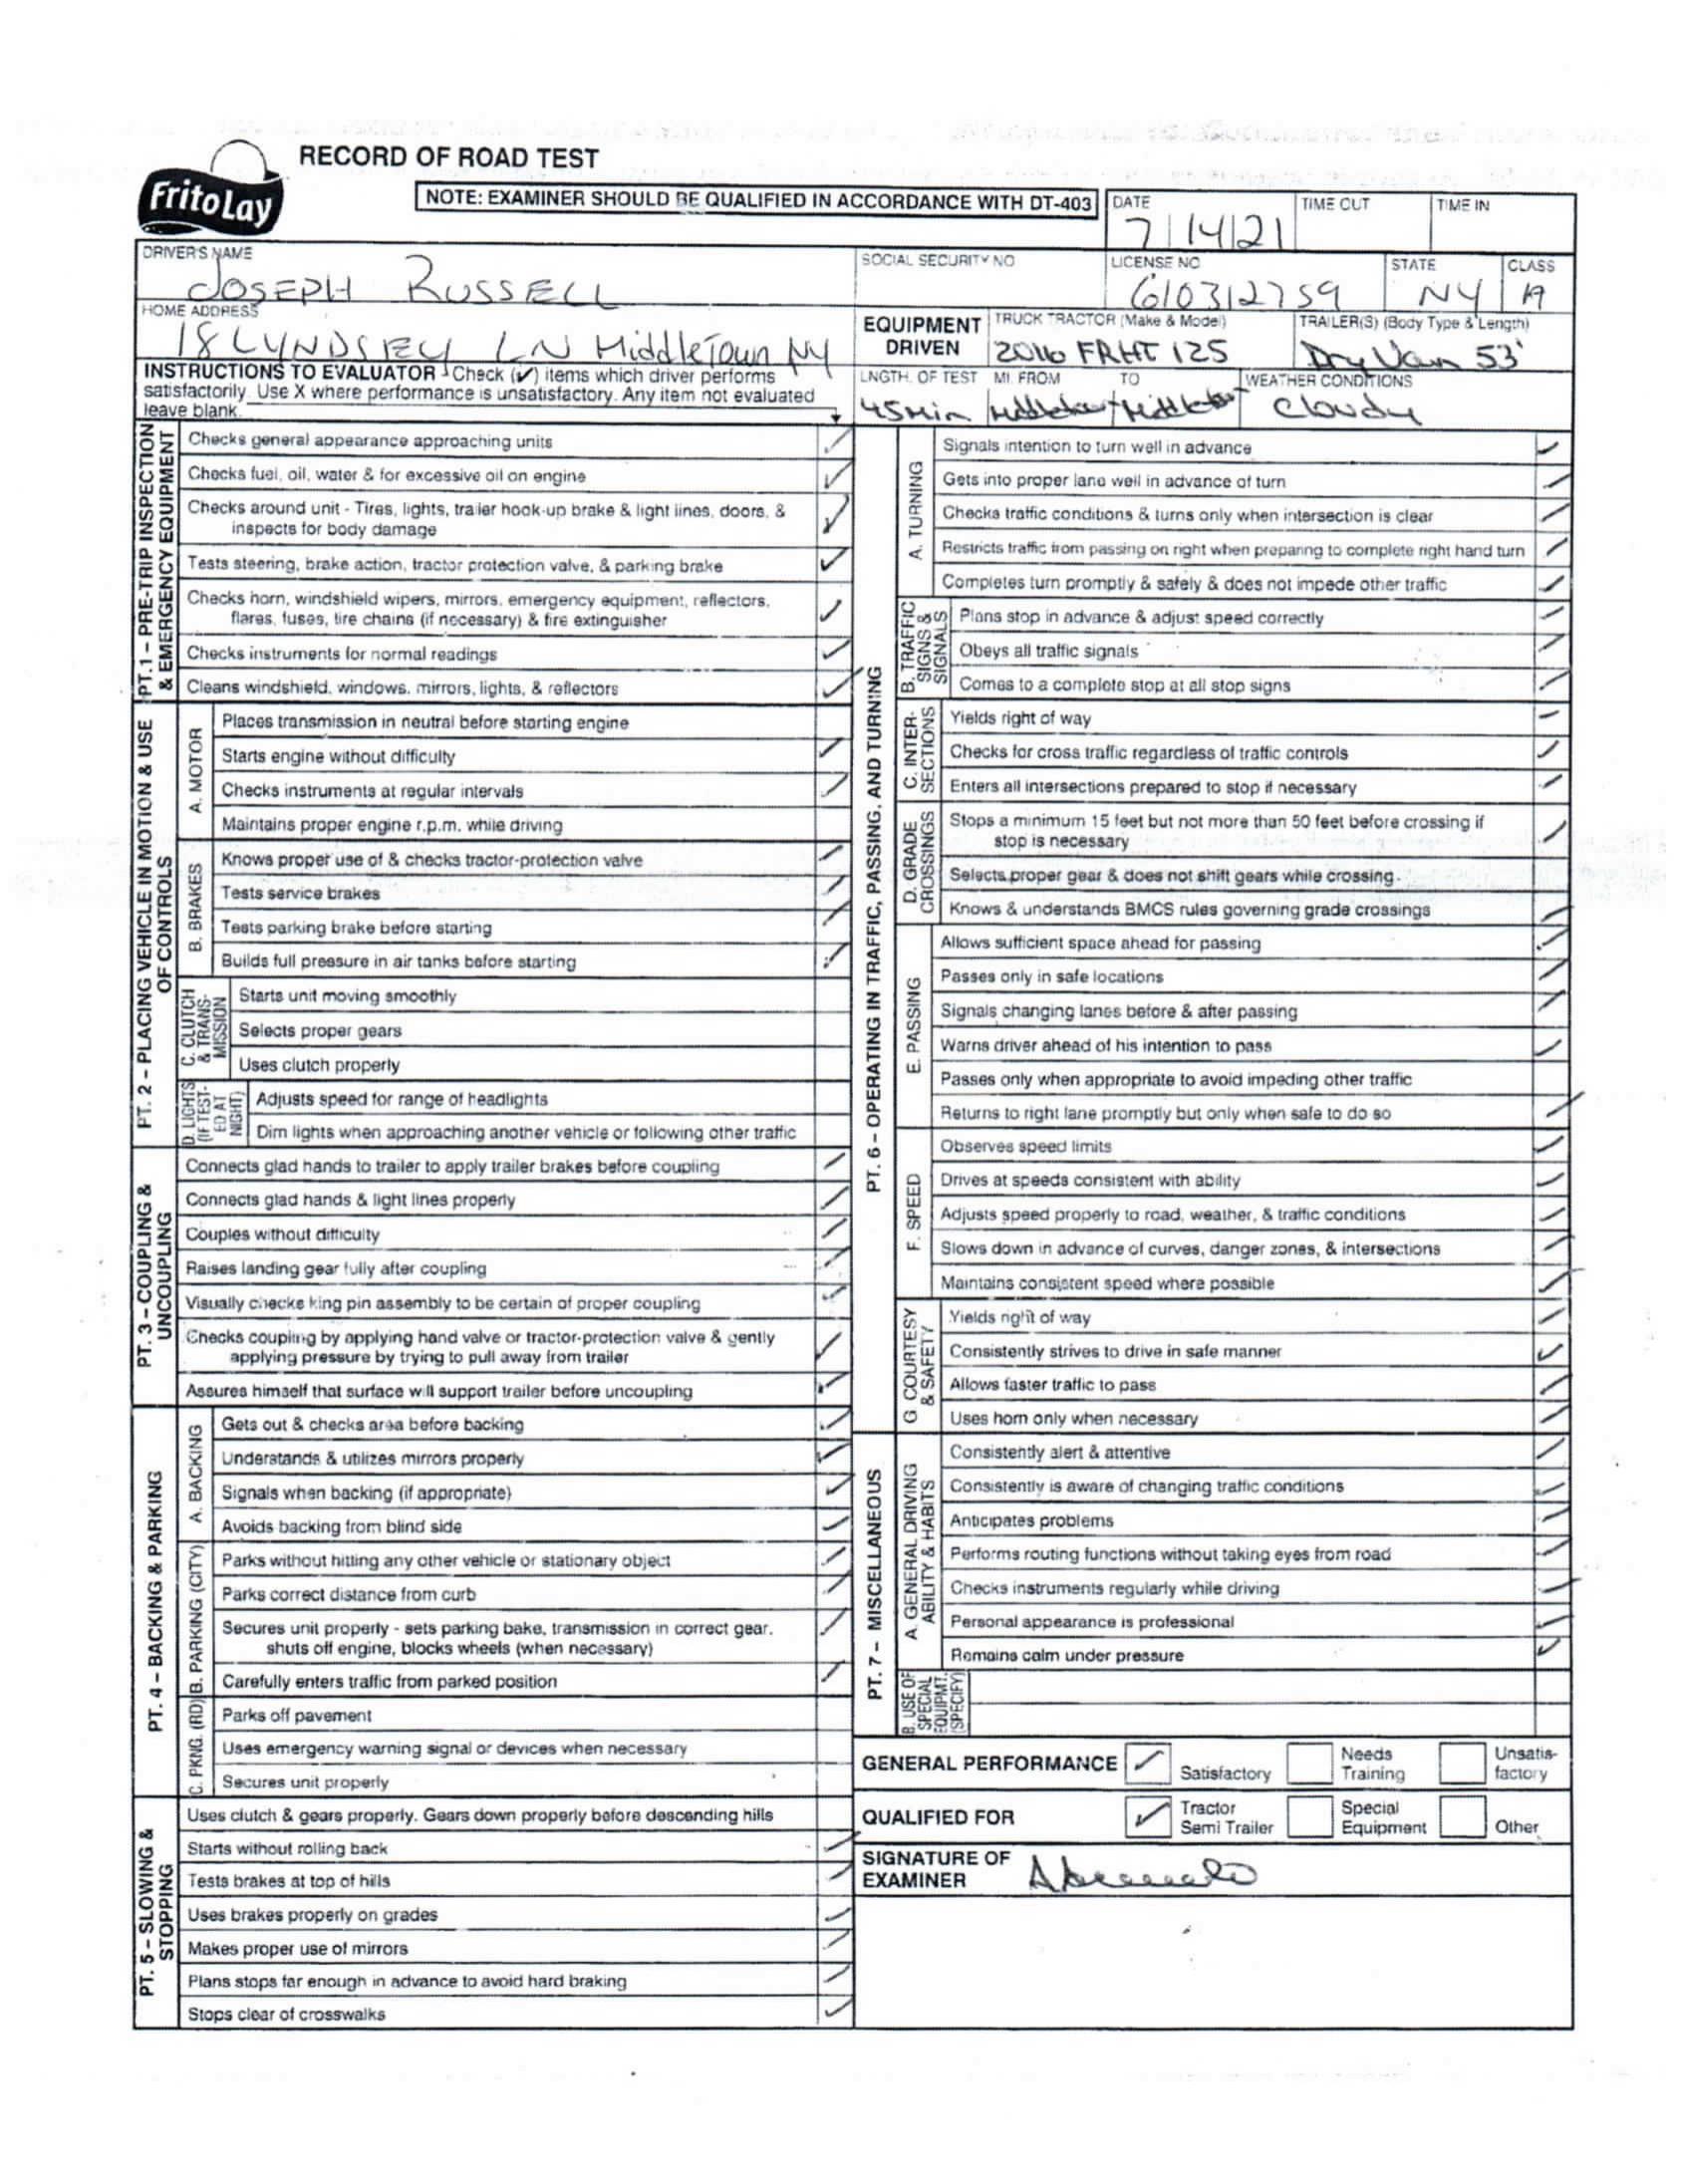 FritoLay
RECORD OF ROAD TEST
NOTE: EXAMINER SHOULD BE QUALIFIED IN ACCORDANCE WITH DT-403
DATE
7/14/21
TIME OUT
TIME IN
DRIVER'S NAME
JOSEPH RUSSELL
SOCIAL SECURITY NO
LICENSE NO
610312759
STATE
NY
CLASS
A
HOME ADDRESS
18 LYNDSEY LN MiddleTown NY
EQUIPMENT DRIVEN
TRUCK TRACTOR (Make & Model)
2016 FRHT 125
TRAILER(S) (Body Type & Length)
Dry Van 53'
INSTRUCTIONS TO EVALUATOR Check (✓) items which driver performs
satisfactorily. Use X where performance is unsatisfactory. Any item not evaluated
leave blank.
LNGTH. OF TEST
45 Min
MI. FROM
TO
WEATHER CONDITIONS
Cloudy
PT.1 – PRE-TRIP INSPECTION & EMERGENCY EQUIPMENT
Checks general appearance approaching units ✓
Checks fuel, oil, water & for excessive oil on engine ✓
Checks around unit - Tires, lights, trailer hook-up brake & light lines, doors, &
inspects for body damage ✓
Tests steering, brake action, tractor protection valve, & parking brake ✓
Checks horn, windshield wipers, mirrors, emergency equipment, reflectors,
flares, fuses, tire chains (if necessary) & fire extinguisher ✓
Checks instruments for normal readings ✓
Cleans windshield, windows, mirrors, lights, & reflectors ✓
PT. 2 – PLACING VEHICLE IN MOTION & USE OF CONTROLS
A. MOTOR
Places transmission in neutral before starting engine
Starts engine without difficulty ✓
Checks instruments at regular intervals ✓
Maintains proper engine r.p.m. while driving
B. BRAKES
Knows proper use of & checks tractor-protection valve ✓
Tests service brakes ✓
Tests parking brake before starting ✓
Builds full pressure in air tanks before starting ✓
C. CLUTCH & TRANS-MISSION
Starts unit moving smoothly
Selects proper gears
Uses clutch properly
D. LIGHTS (IF TEST-ED AT NIGHT)
Adjusts speed for range of headlights
Dim lights when approaching another vehicle or following other traffic
PT. 3 – COUPLING & UNCOUPLING
Connects glad hands to trailer to apply trailer brakes before coupling ✓
Connects glad hands & light lines properly ✓
Couples without difficulty ✓
Raises landing gear fully after coupling ✓
Visually checks king pin assembly to be certain of proper coupling ✓
Checks coupling by applying hand valve or tractor-protection valve & gently
applying pressure by trying to pull away from trailer ✓
Assures himself that surface will support trailer before uncoupling ✓
PT. 4 – BACKING & PARKING
A. BACKING
Gets out & checks area before backing ✓
Understands & utilizes mirrors properly ✓
Signals when backing (if appropriate) ✓
Avoids backing from blind side ✓
B. PARKING (CITY)
Parks without hitting any other vehicle or stationary object ✓
Parks correct distance from curb ✓
Secures unit properly - sets parking bake, transmission in correct gear,
shuts off engine, blocks wheels (when necessary) ✓
Carefully enters traffic from parked position ✓
C. PKNG. (RD)
Parks off pavement
Uses emergency warning signal or devices when necessary
Secures unit properly
PT. 5 – SLOWING & STOPPING
Uses clutch & gears properly. Gears down properly before descending hills
Starts without rolling back ✓
Tests brakes at top of hills ✓
Uses brakes properly on grades ✓
Makes proper use of mirrors ✓
Plans stops far enough in advance to avoid hard braking ✓
Stops clear of crosswalks ✓
PT. 6 – OPERATING IN TRAFFIC, PASSING, AND TURNING
A. TURNING
Signals intention to turn well in advance ✓
Gets into proper lane well in advance of turn ✓
Checks traffic conditions & turns only when intersection is clear ✓
Restricts traffic from passing on right when preparing to complete right hand turn ✓
Completes turn promptly & safely & does not impede other traffic ✓
B. TRAFFIC SIGNS & SIGNALS
Plans stop in advance & adjust speed correctly ✓
Obeys all traffic signals ✓
Comes to a complete stop at all stop signs ✓
C. INTER-SECTIONS
Yields right of way ✓
Checks for cross traffic regardless of traffic controls ✓
Enters all intersections prepared to stop if necessary ✓
D. GRADE CROSSINGS
Stops a minimum 15 feet but not more than 50 feet before crossing if
stop is necessary ✓
Selects proper gear & does not shift gears while crossing
Knows & understands BMCS rules governing grade crossings ✓
E. PASSING
Allows sufficient space ahead for passing ✓
Passes only in safe locations ✓
Signals changing lanes before & after passing ✓
Warns driver ahead of his intention to pass ✓
Passes only when appropriate to avoid impeding other traffic
Returns to right lane promptly but only when safe to do so ✓
F. SPEED
Observes speed limits ✓
Drives at speeds consistent with ability ✓
Adjusts speed properly to road, weather, & traffic conditions ✓
Slows down in advance of curves, danger zones, & intersections ✓
Maintains consistent speed where possible ✓
G COURTESY & SAFETY
Yields right of way ✓
Consistently strives to drive in safe manner ✓
Allows faster traffic to pass ✓
Uses horn only when necessary ✓
PT. 7 – MISCELLANEOUS
A. GENERAL DRIVING ABILITY & HABITS
Consistently alert & attentive ✓
Consistently is aware of changing traffic conditions ✓
Anticipates problems ✓
Performs routing functions without taking eyes from road ✓
Checks instruments regularly while driving ✓
Personal appearance is professional ✓
Remains calm under pressure ✓
B. USE OF SPECIAL EQUIPMT. (SPECIFY)
GENERAL PERFORMANCE
✓ Satisfactory
Needs Training
Unsatis-factory
QUALIFIED FOR
✓ Tractor Semi Trailer
Special Equipment
Other
SIGNATURE OF EXAMINER